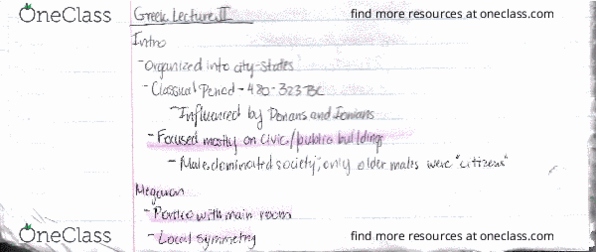 OneClass
find more resources at oneclass.com
Greek Lecture II
Intro
- Organized into city-states
- Classical Period - 480-323 BC
- Influenced by Dorians and Ionians
- Focused mostly on civic/public buildings
- Male dominated society; only older males were "citizens"
Megaron
- Portico with main room
- Local symmetry
OneClass
find more resources at oneclass.com